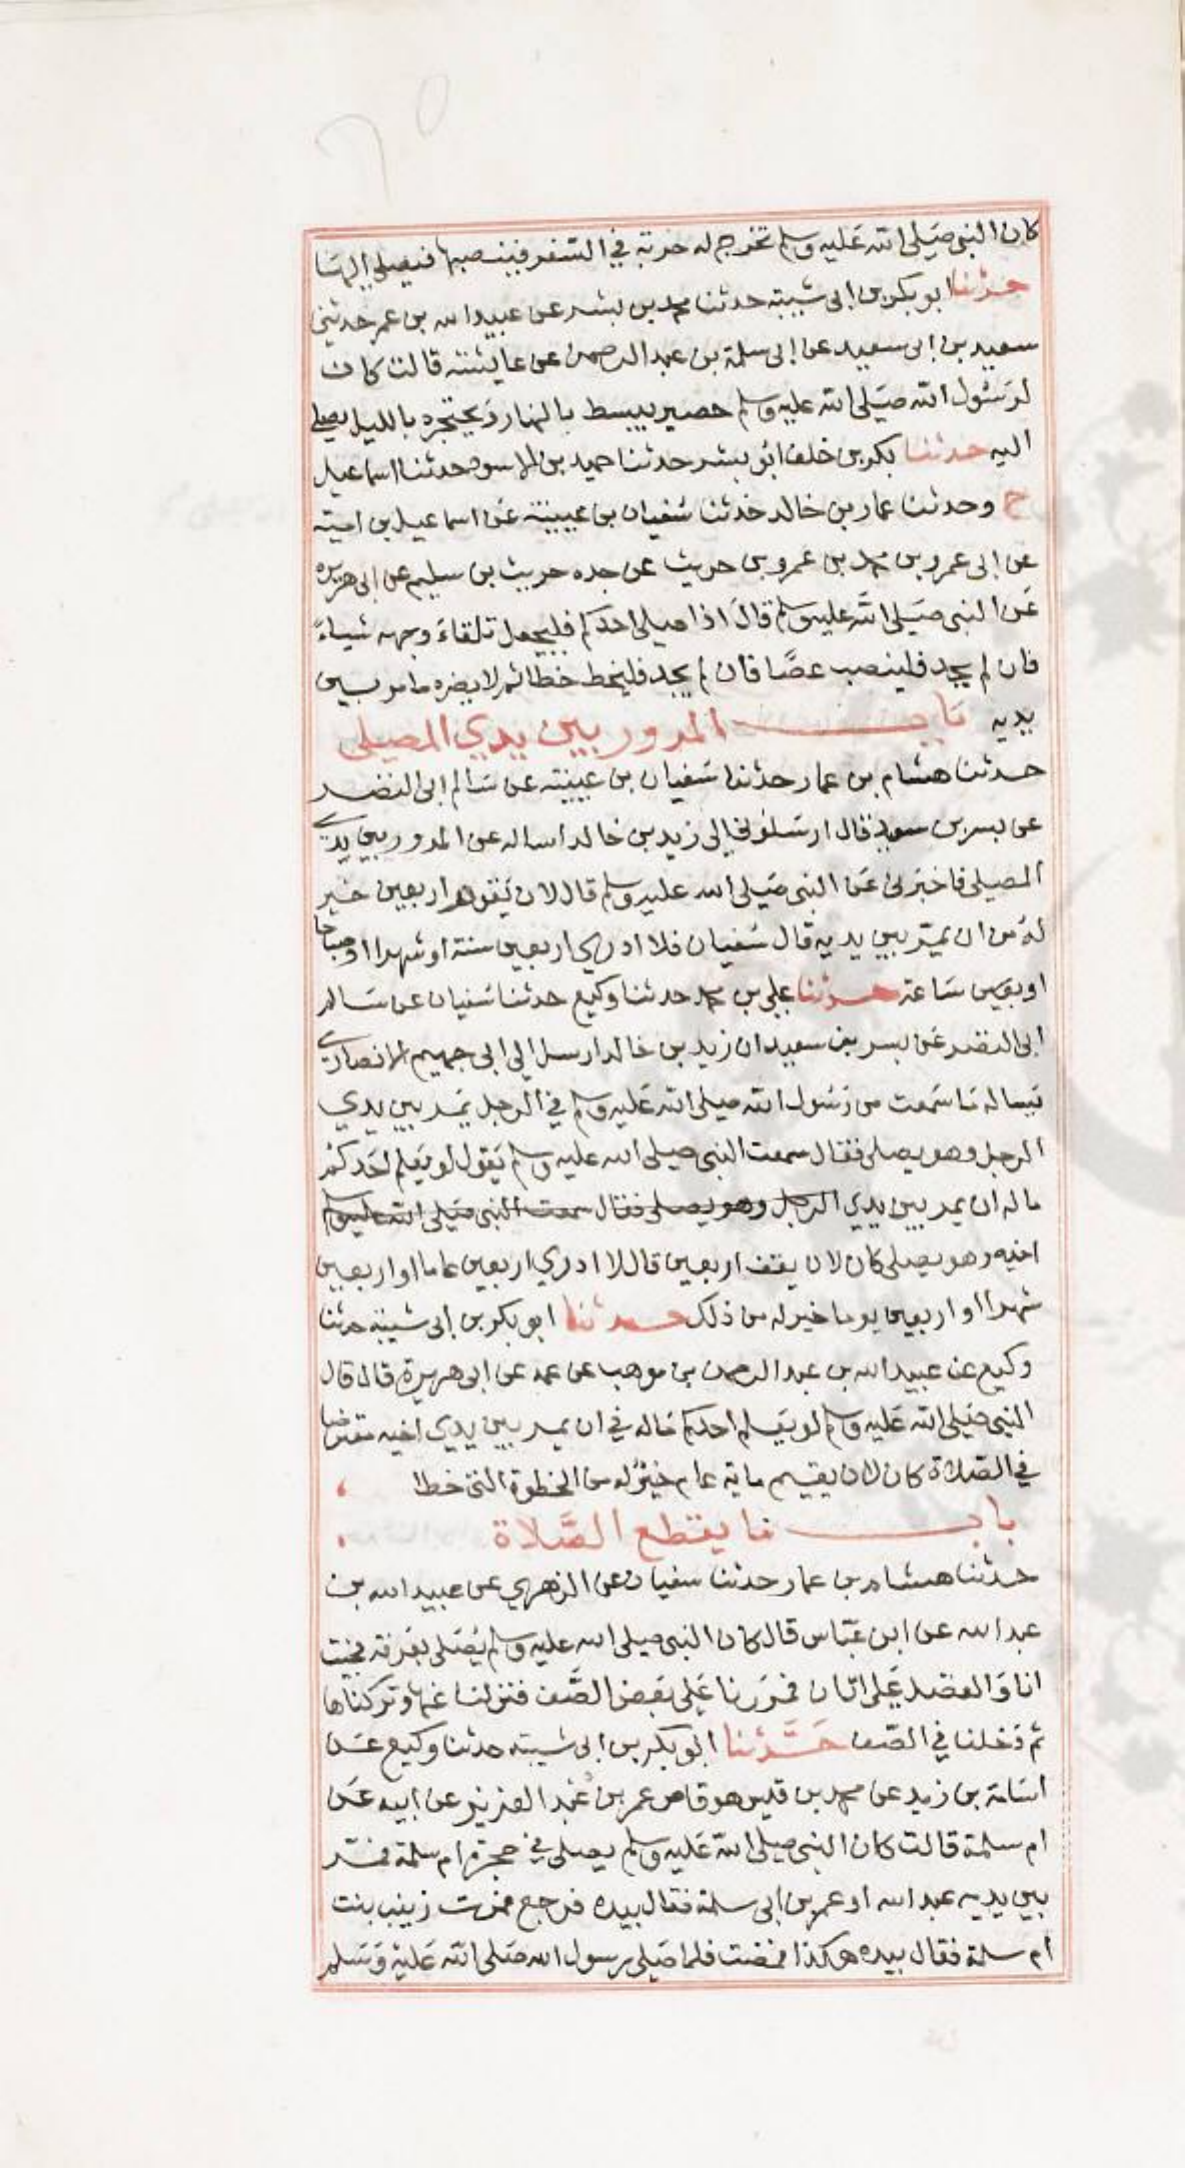 كان النبي صَلى الله عَليه وسلم تخرج له حربة في السَّفر فينصبها فيصلي اليها
حدثنا ابو بكر بن ابي شيبة حدثنا محمد بن بشر عن عبيد الله بن عمر حدثني
سعيد بن ابي سعيد عن ابي سلمة بن عبد الرحمن عن عايشة قالت كان
لرسُول الله صَلى الله عليه وسلم حصير يبسط بالنهار ويحتجره بالليل يصلي
اليه حدثنا بكر بن خلف ابو بشر حدثنا حميد بن الاسود حدثنا اسماعيل
ح وحدثنا عمار بن خالد حدثنا سُفيان بن عيينة عن اسماعيل بن امية
عن ابي عمرو بن محمد بن عمرو بن حريث عن جده حريث بن سليم عن ابي هريرة
عَن النبي صَلى الله عليه وسلم قال اذا صلى احدكم فليجعل تلقاء وجهه شياءً
فان لم يجد فلينصب عصًا فان لم يجد فليخط خطا ثم لا يضره ما مر بين
يديه باب المرور بين يدي المصلي
حدثنا هشام بن عمار حدثنا سُفيان بن عيينة عن سَالم ابي النضر
عن بسر بن سعيد قال ارسَلوني الى زيد بن خالد اساله عن المرور بين يدي
المصلي فاخبرني عَن النبي صَلى الله عليه وسلم قال لان يَقوم اربعين خير
له من ان يمرّ بين يديه قال سُفيان فلا ادري اربعين سنة او شهرا او صباحا
او بعين سَاعة حدثنا علي بن محمد حدثنا وكيع حدثنا سُفيان عن سَالم
ابي النضر عَن بسر بن سعيد ان زيد بن خالد ارسل الى ابي جهيم الانصاري
يَساله مَا سَمعت من رَسُول الله صلى الله عَليه وسلم في الرجل يَمر بين يدي
الرجل وهو يصلي فقال سمعت النبي صلى الله عليه وسلم يَقول لو يَعلم احَدكم
ما له ان يمر بين يدي الرجل وهو يصلي فقال سمعت النبي صَلى الله عليه وسلم
اخيه وهو يصلي كان لان يقف اربعين قال لا ادري اربعين عاما او اربعين
شهرا او اربعين يوما خير له من ذلك حدثنا ابو بكر بن ابي شيبة حدثنا
وكيع عن عبيد الله بن عبد الرحمن بن موهب عن عمه عن ابي هريرة قال قال
النبي صَلى الله عَليه وسلم لو يَعلم احدكم مَاله في ان يمر بين يدي اخيه معترضا
في الصَّلاة كان لان يقيم ماية عام خيرٌ له من الخطوة التي خطا
باب مَا يقطع الصَّلاة
حدثنا هشام بن عمار حدثنا سفيان عن الزهري عن عبيد الله بن
عبد الله عن ابن عَبّاس قال كان النبي صلى الله عليه وسلم يُصَلي بعَرفة فجيت
انا وَالفضل عَلى اتان فمرَرنا عَلى بَعض الصَّف فنزلنا عنها وتركناها
ثم دَخلنا في الصّف حَدَّثنا ابو بكر بن ابي شيبة حدثنا وكيع عَن
اسَامة بن زيد عن محمد بن قيس هو قاص عمر بن عَبد العزيز عن ابيه عَن
ام سلمة قالت كان النبي صلى الله عَليه وسلم يصلي في حجرة ام سلمة فمر
بين يديه عبد الله او عمر بن ابي سلمة فقال بيده فرجع فمرت زينب بنت
ام سلمة فقال بيده هكذا فمضت فلما صَلى رسول الله صَلى الله عَليه وَسَلم